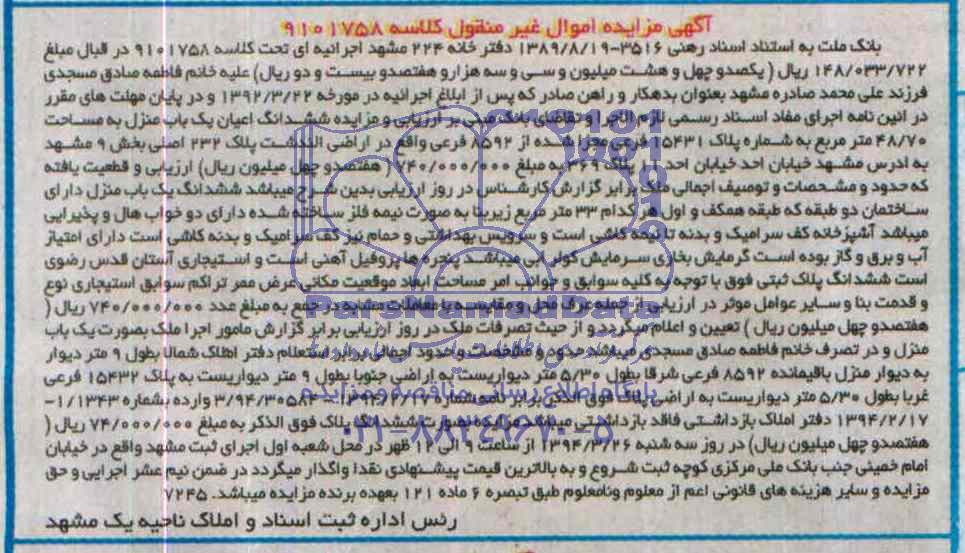 آگهی مزایده اموال غیر منقول کلاسه ۹۱۰۱۷۵۸
بانک ملت به استناد اسناد رهنی ۳۵۱۶-۱۳۸۹/۸/۱۹ دفتر خانه ۲۲۴ مشهد اجرائیه ای تحت کلاسه ۹۱۰۱۷۵۸ در قبال مبلغ
۱۴۸/۰۳۳/۷۲۲ ریال ( یکصدو چهل و هشت میلیون و سی و سه هزارو هفتصدو بیست و دو ریال) علیه خانم فاطمه صادق مسجدی
فرزند علی محمد صادره مشهد بعنوان بدهکار و راهن صادر که پس از ابلاغ اجرائیه در مورخه ۱۳۹۲/۳/۲۲ و در پایان مهلت های مقرر
در ائین نامه اجرای مفاد اسناد رسمی لازم الاجرا و تقاضای بانک مبنی بر ارزیابی و مزایده ششدانگ اعیان یک باب منزل به مساحت
۴۸/۷۰ متر مربع به شماره پلاک ۱۵۴۳۱ فرعی مجزا شده از ۸۵۹۲ فرعی واقع در اراضی الندشت پلاک ۲۳۲ اصلی بخش ۹ مشهد
به ادرس مشهد خیابان احد خیابان احد پلاک ۲۶۹ به مبلغ ۷۴۰/۰۰۰/۰۰۰ ( هفتصدو چهل میلیون ریال) ارزیابی و قطعیت یافته
که حدود و مشخصات و توصیف اجمالی ملک برابر گزارش کارشناس در روز ارزیابی بدین شرح میباشد ششدانگ یک باب منزل دارای
ساختمان دو طبقه که طبقه همکف و اول هر کدام ۳۳ متر مربع زیربنا به صورت نیمه فلز ساخته شده دارای دو خواب هال و پذیرایی
میباشد آشپزخانه کف سرامیک و بدنه تا نیمه کاشی است و سرویس بهداشتی و حمام نیز کف سرامیک و بدنه کاشی است دارای امتیاز
آب و برق و گاز بوده است گرمایش بخاری سرمایش کولر ابی میباشد پنجره ها پروفیل آهنی است و استیجاری آستان قدس رضوی
است ششدانگ پلاک ثبتی فوق با توجه به کلیه سوابق و جوانب امر مساحت ابعاد موقعیت مکانی عرض ممر تراکم سوابق استیجاری نوع
و قدمت بنا و سایر عوامل موثر در ارزیابی از جمله عرف محل و مقایسه با معاملات مشابه در جمع به مبلغ عدد ۷۴۰/۰۰۰/۰۰۰ ریال (
هفتصدو چهل میلیون ریال ) تعیین و اعلام میگردد و از حیث تصرفات ملک در روز ارزیابی برابر گزارش مامور اجرا ملک بصورت یک باب
منزل و در تصرف خانم فاطمه صادق مسجدی میباشد حدود و مشخصات و حدود اجمالی برابر استعلام دفتر املاک شمالا بطول ۹ متر دیوار
به دیوار منزل باقیمانده ۸۵۹۲ فرعی شرقا بطول ۵/۳۰ متر دیواریست به اراضی جنوبا بطول ۹ متر دیواریست به پلاک ۱۵۴۳۲ فرعی
غربا بطول ۵/۳۰ متر دیواریست به اراضی پلاک فوق الذکر برابر نامه شماره وارده بشماره ۱/۱۳۴۳-
۱۳۹۴/۲/۱۷ دفتر املاک بازداشتی فاقد بازداشتی میباشد مزایده بصورت ششدانگ پلاک فوق الذکر به مبلغ ۷۴/۰۰۰/۰۰۰ ریال (
هفتصدو چهل میلیون ریال) در روز سه شنبه ۱۳۹۴/۳/۲۶ از ساعت ۹ الی ۱۲ ظهر در محل شعبه اول اجرای ثبت مشهد واقع در خیابان
امام خمینی جنب بانک ملی مرکزی کوچه ثبت شروع و به بالاترین قیمت پیشنهادی نقدا واگذار میگردد در ضمن نیم عشر اجرایی و حق
مزایده و سایر هزینه های قانونی اعم از معلوم ونامعلوم طبق تبصره ۶ ماده ۱۲۱ بعهده برنده مزایده میباشد. ۷۲۴۵
رئس اداره ثبت اسناد و املاک ناحیه یک مشهد
ParsNamadData
پایگاه اطلاع رسانی مناقصه و مزایده
۰۲۱-۸۸۳۴۹۶۷۰-۵